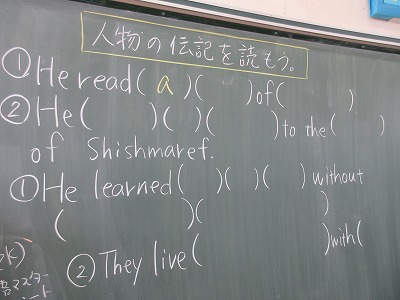 人物の伝記を読もう。
①He read( a )( )of( )
②He( )( )( )to the( )
of Shishmaref.
①He learned( )( )( )without
( )( )
②They live( )with(